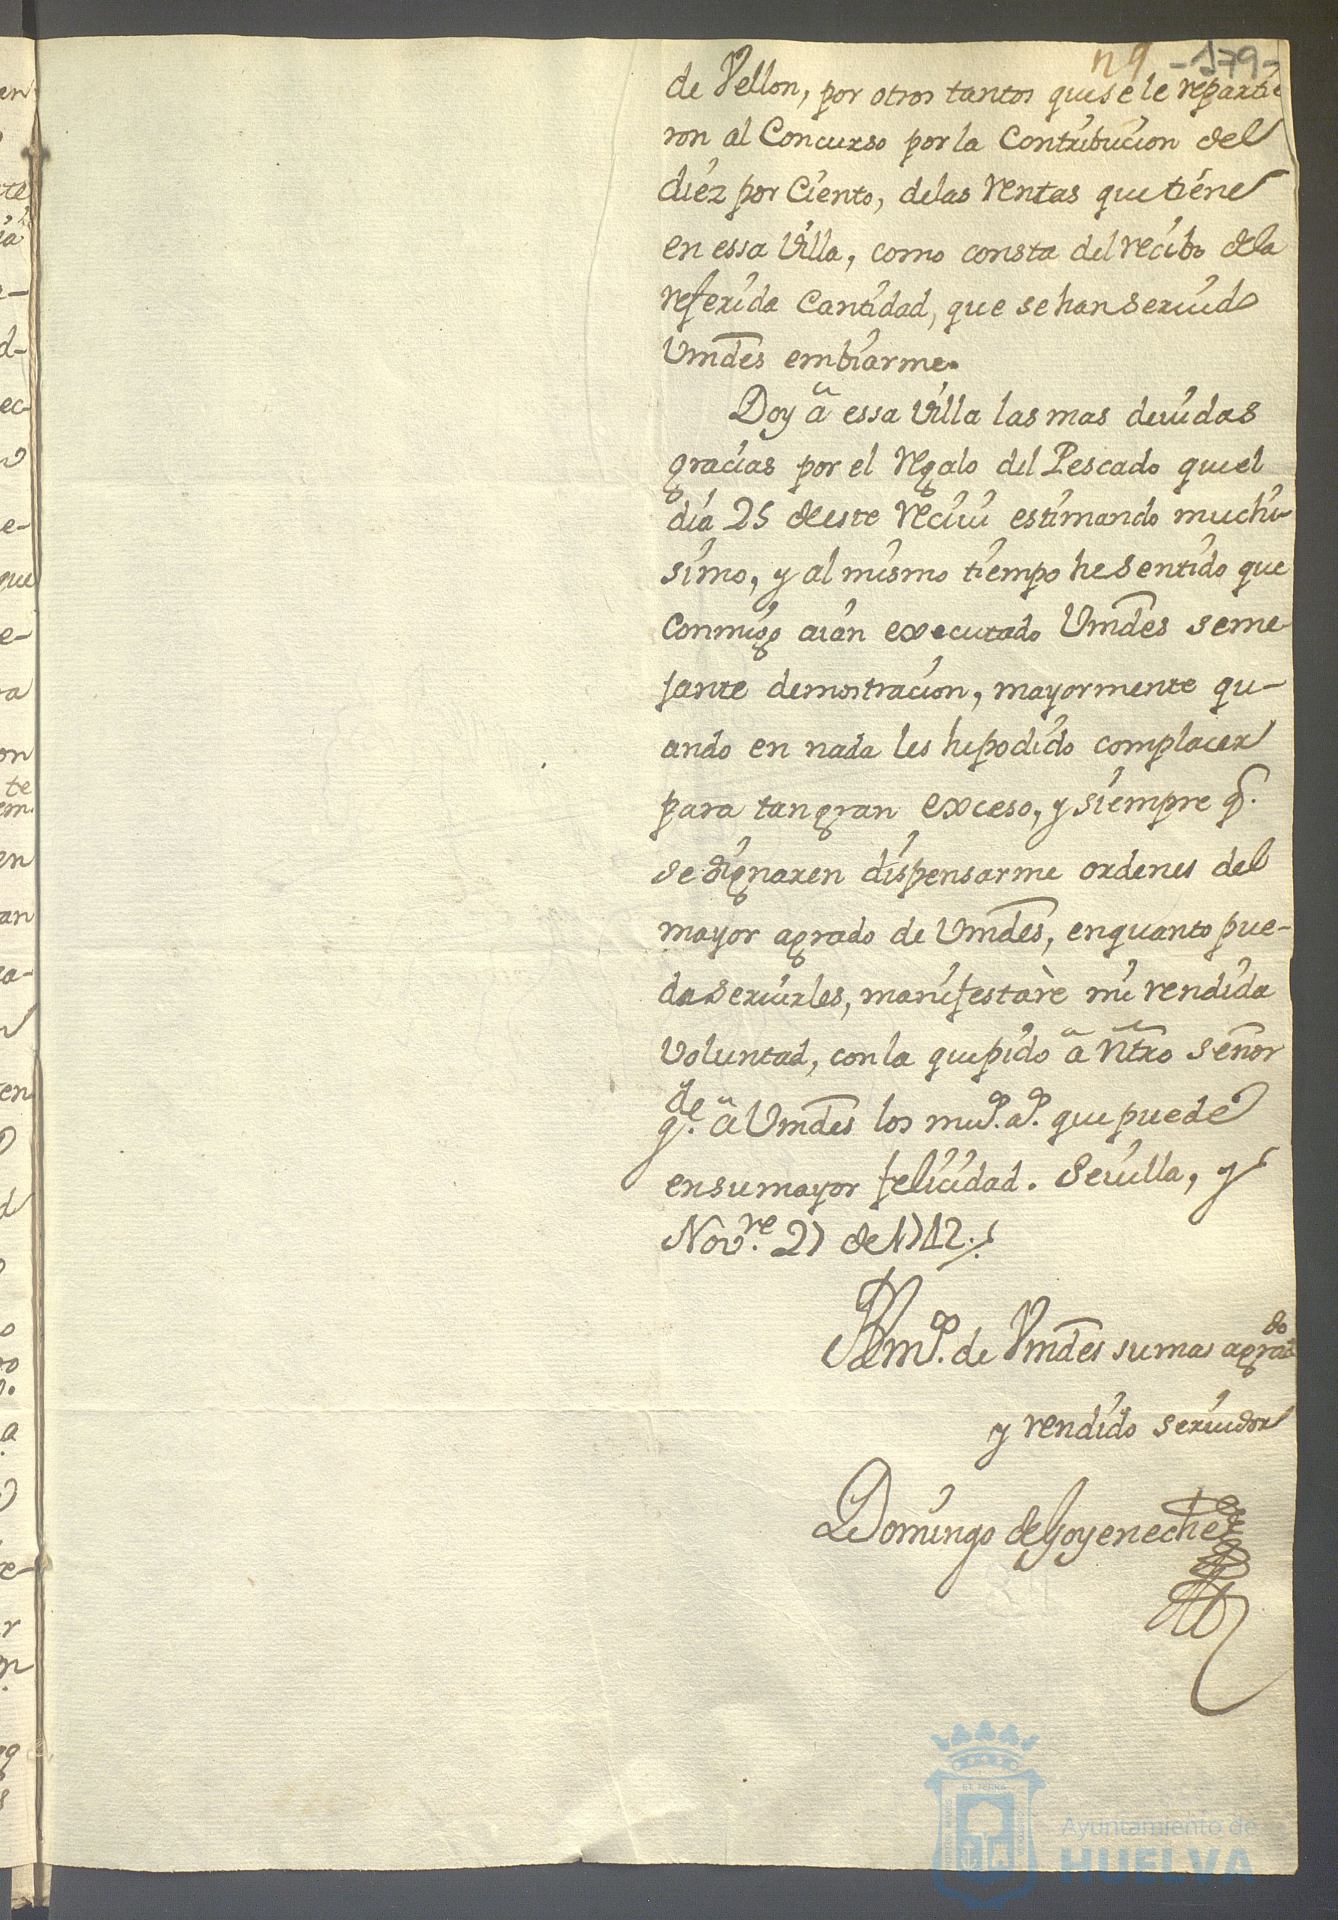 n 9 -179-
de Vellon, por otros tantos que se le repartie
ron al Concurso por la Contribucion del
diez por Ciento, de las rentas que tiene
en essa Villa, como consta del recibo de la
referida Cantidad, que se han seruido
Vmdes embiarme.
Doy â essa Villa las mas deuidas
gracias por el regalo del Pescado que el
dia 25 de este reciui estimando muchi-
simo, y al mismo tiempo he sentido que
conmigo aian executado Vmdes seme-
jante demostracion, mayormente qu-
ando en nada les he podido complacer
para tan gran exceso, y siempre q.
se dignaren dispensarme ordenes del
mayor agrado de Vmdes, en quanto pue-
da seruirles, manifestarè mi rendida
voluntad, con la que pido â Ntro Señor
gde. â Vmdes los mus. as. que puede
en su mayor felicidad. Seuilla, y
Novre. 27 de 1712.
BLM. de Vmdes su mas agrado
y rendido seruidor
Domingo de Goyeneche
en
te
ia
d-
ec-
e-
que
e-
ra
on
te
em.
en
an
a-
en
o
a
e-
r
Ayuntamiento de
HUELVA